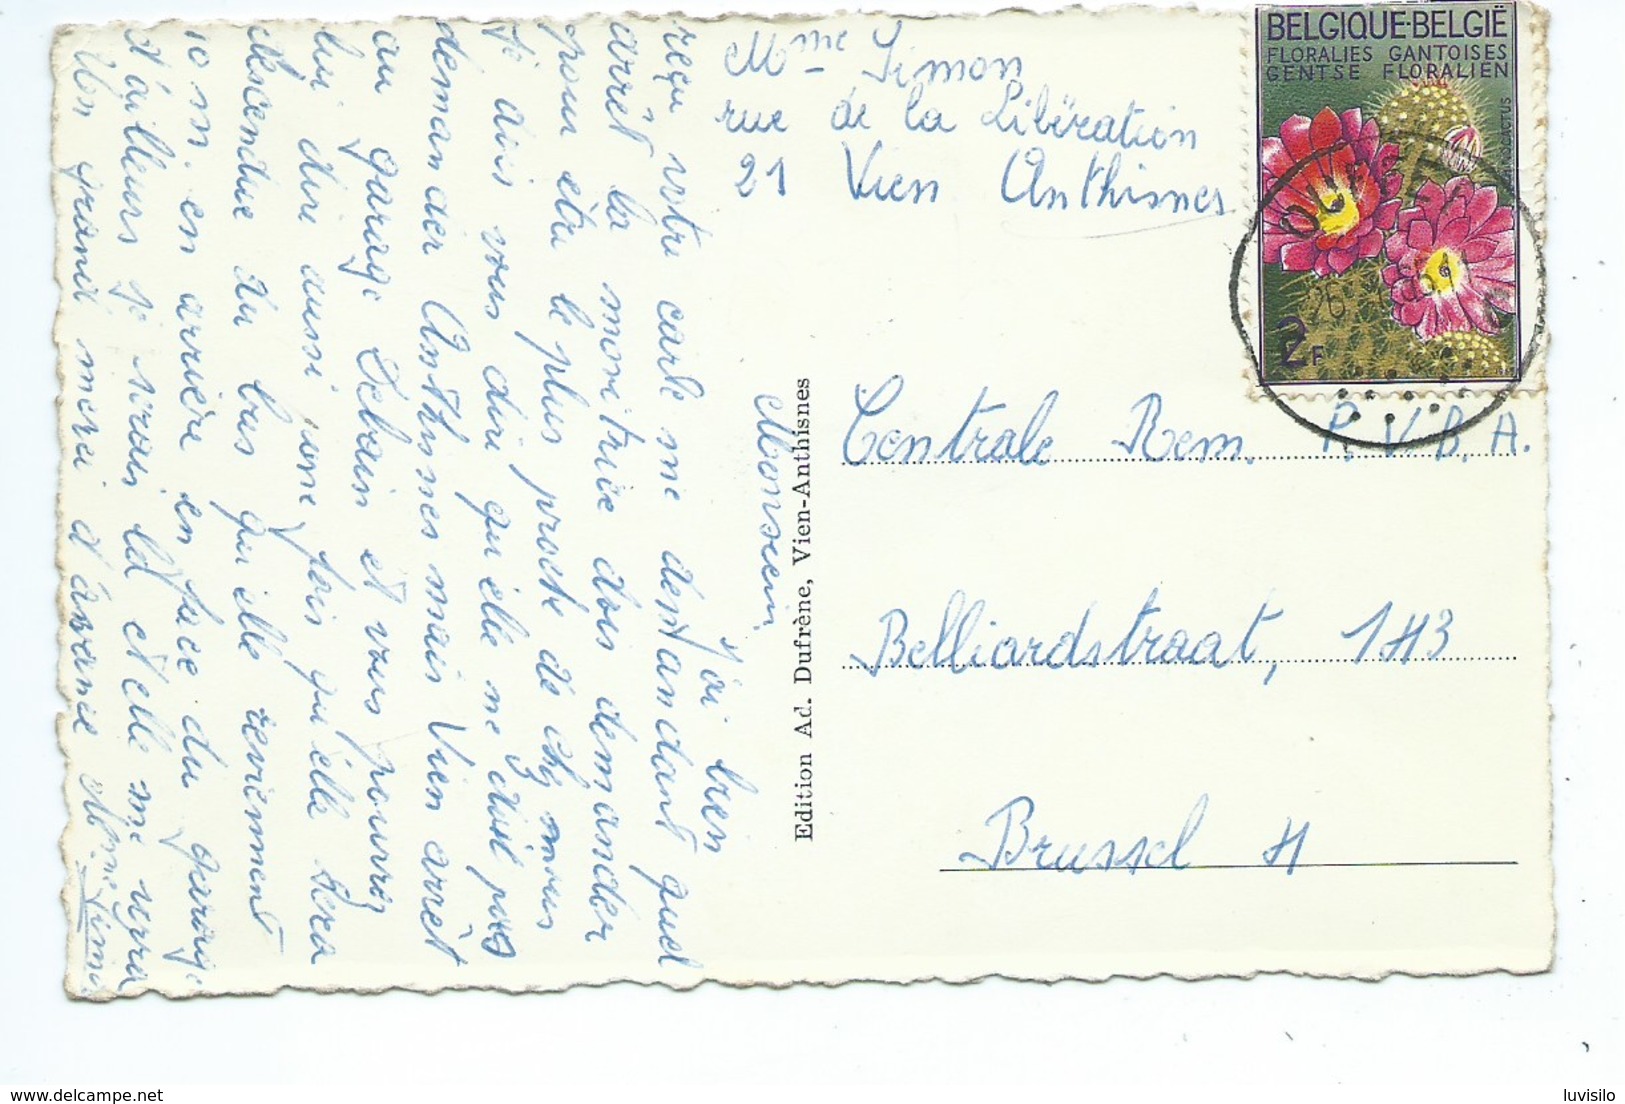 Mme Simon
rue de la Libération
21 Vien Anthisnes
BELGIQUE-BELGIË
FLORALIES GANTOISES
GENTSE FLORALIEN
2F
Centrale Rem. P.V.B.A.
Belliardstraat, 143
Brussel 4
Edition Ad. Dufrène, Vien-Anthisnes
Monsieur
J'ai bien
reçu votre carte me demandant quel
arrêt la monitrice dois demander
pour être le plus proche de chez nous
Je dois vous dire qu'elle ne doit pas
demander Anthisnes mais Vien arrêt
au garage Delrain et vous pourrez
lui dire aussi une fois qu'elle sera
descendue du bus qu'elle reviennent
10 m. en arrière en face du garage
d'ailleurs je serais là et elle me verra
Un grand merci d'avance Mme Simon
luvisilo
delcampe.net